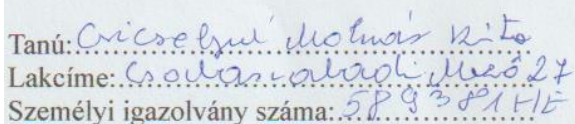 Tanú: Csicselyné Molnár Rita
Lakcíme: Mező 27
Személyi igazolvány száma: 589381HE